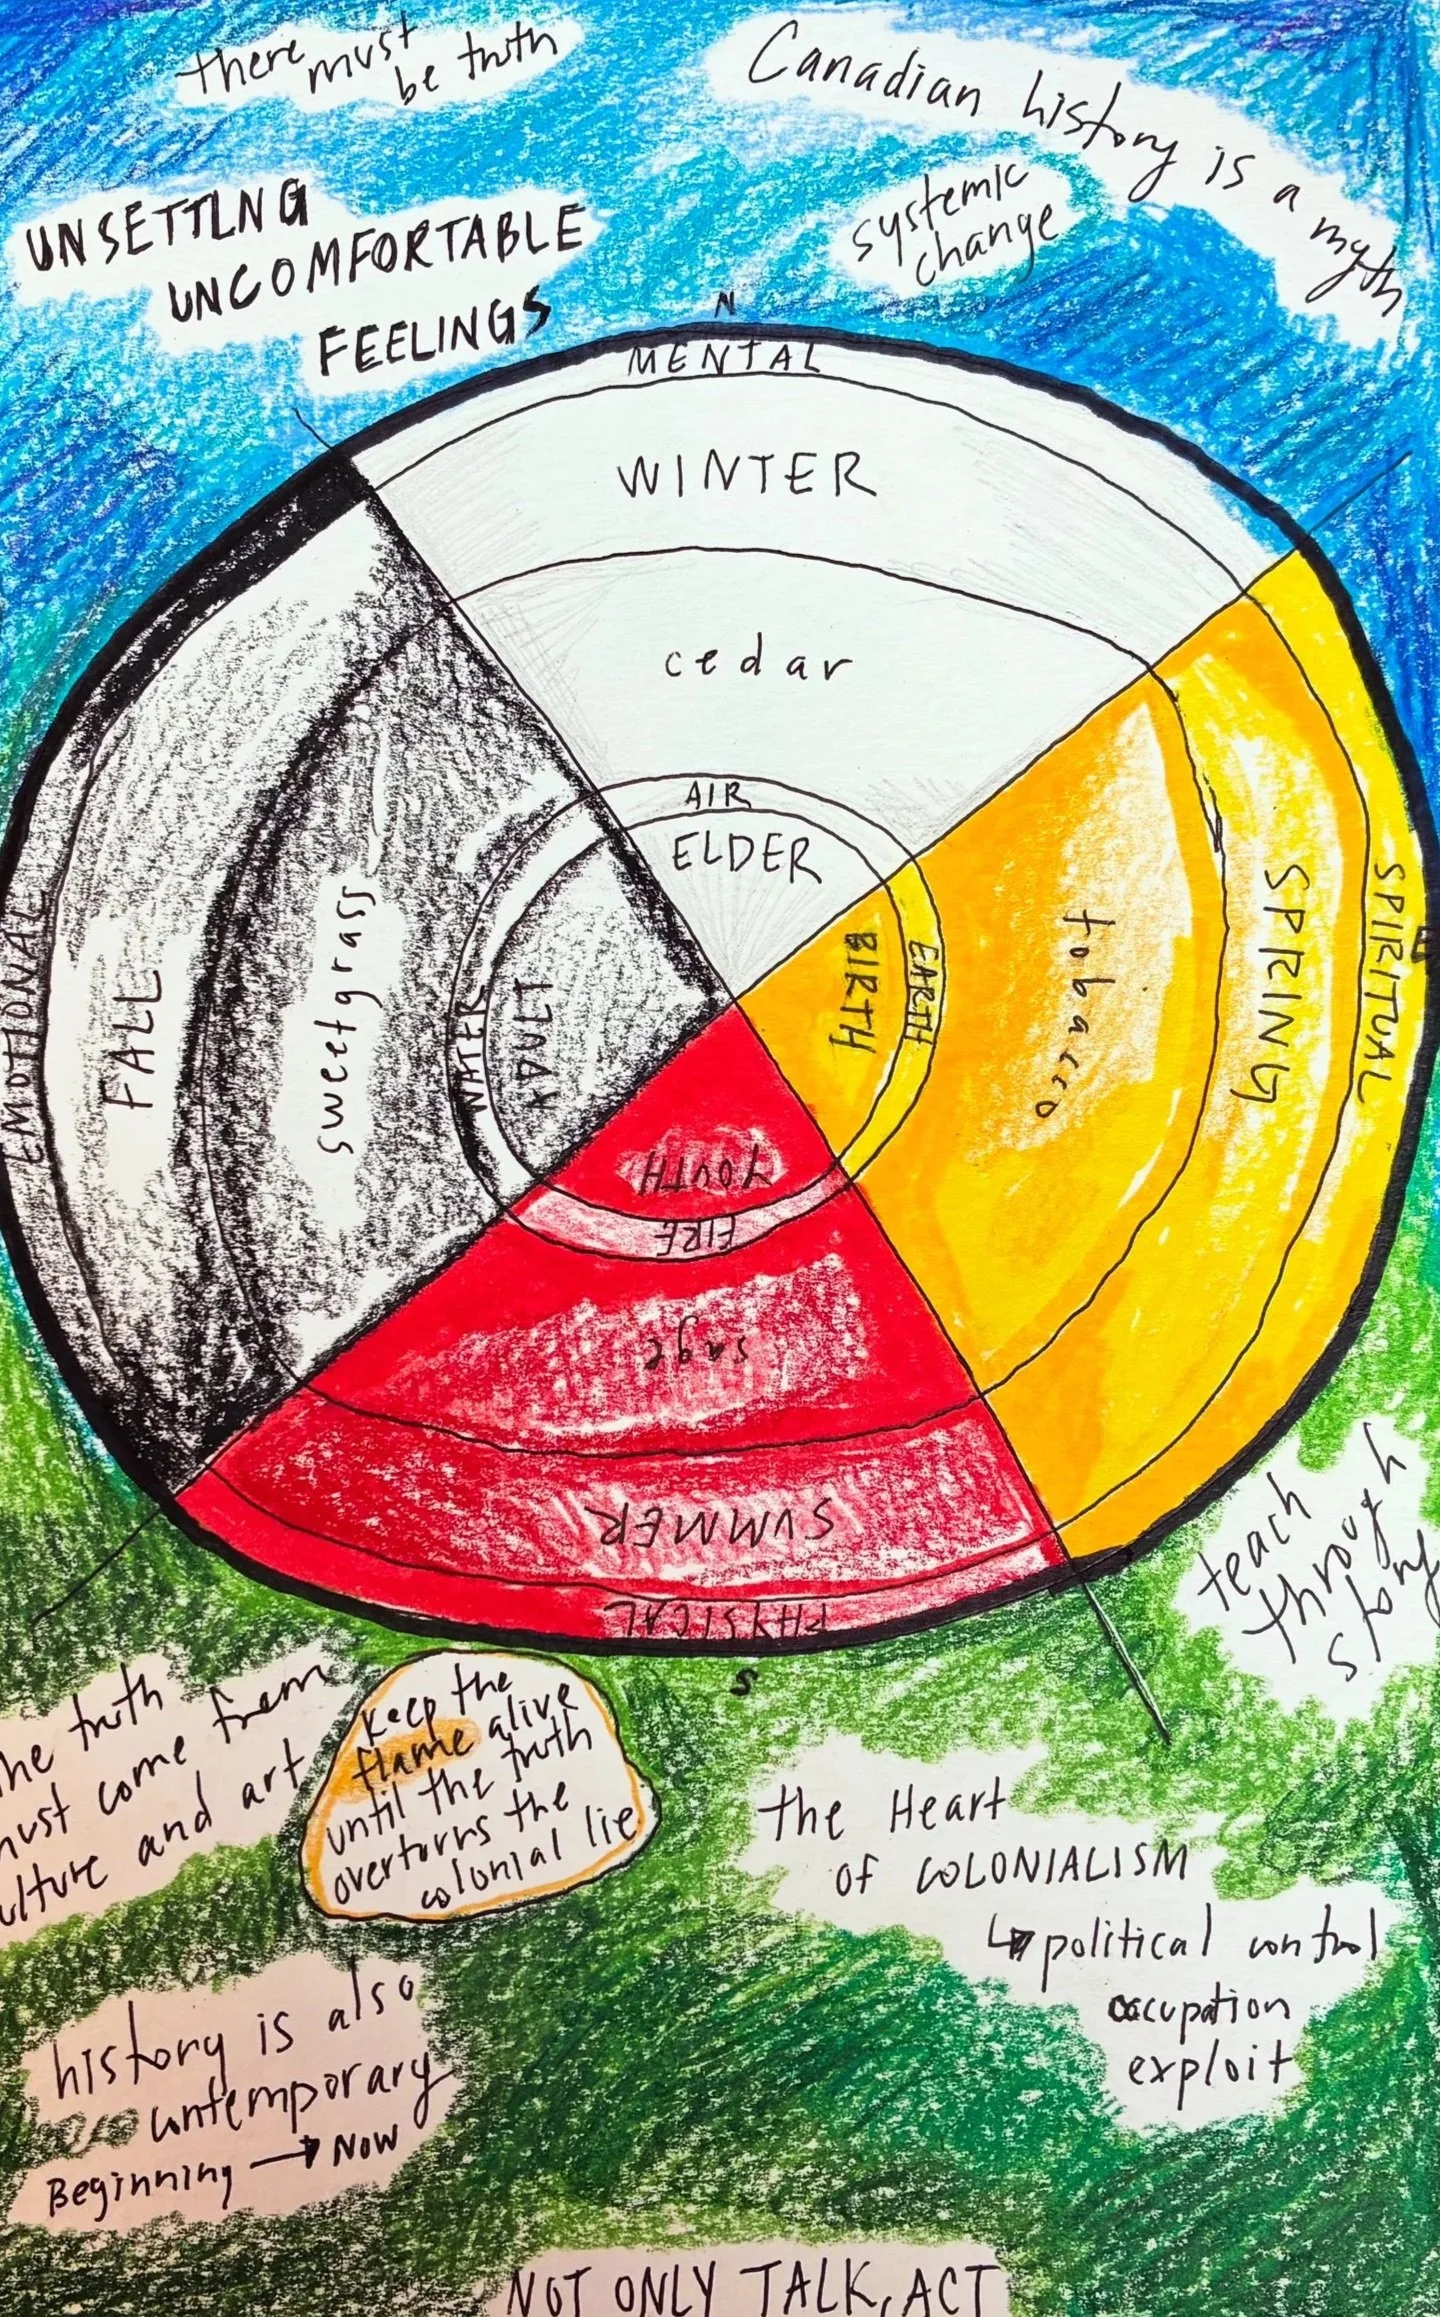 there must
be truth
Canadian history is a myth
systemic
change
UNSETTLNG
UNCOMFORTABLE
FEELINGS
N
MENTAL
WINTER
cedar
AIR
ELDER
EMOTIONAL
FALL
sweetgrass
WATER
ADULT
BIRTH
EARTH
tobacco
SPRING
SPIRITUAL
E
YOUTH
FIRE
sage
SUMMER
PHYSICAL
S
teach
through
story
the truth
must come from
culture and art
keep the
flame alive
until the truth
overturns the
colonial lie
the Heart
OF COLONIALISM
↳ political control
occupation
exploit
history is also
contemporary
Beginning → NOW
NOT ONLY TALK, ACT